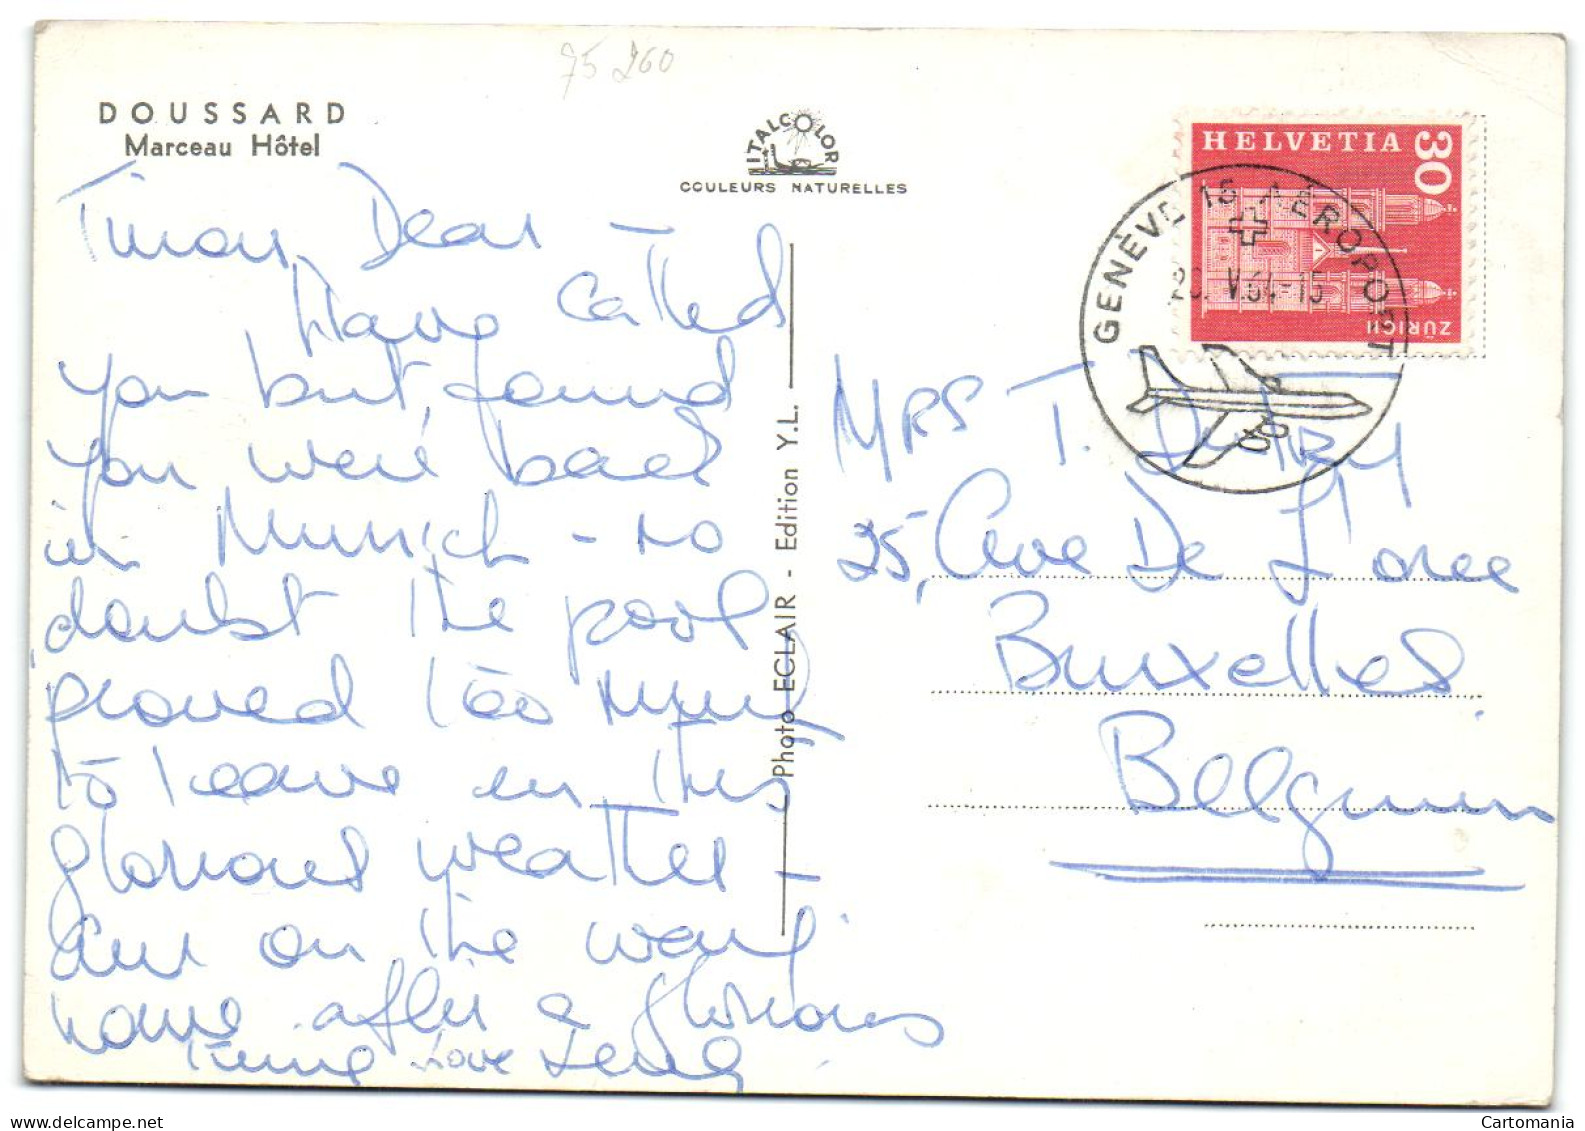 75 260
DOUSSARD
Marceau Hôtel
ITALCOLOR
COULEURS NATURELLES
HELVETIA
30
ZÜRICH
GENÈVE 15 AÉROPORT
20. V.64-15
Photo ECLAIR - Edition Y.L.
Dear -
Have called
you but, found
you were back
in Munich - no
doubt the pool
proved too much
to leave in this
glorious weather -
am on the way
home after a glorious
time Love
MRS T.
25, Ave De L'Oree
Bruxelles
Belgium
Cartomania